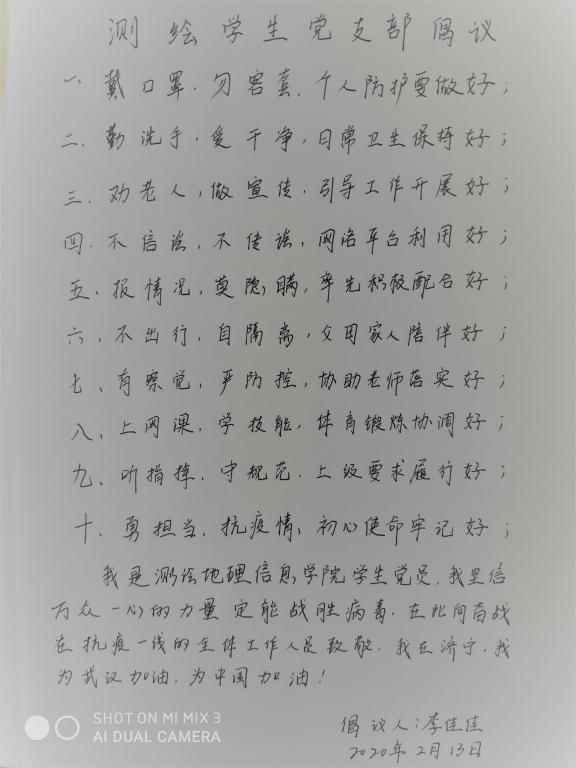 测绘学生党支部倡议
一、戴口罩，勿容套，个人防护要做好；
二、勤洗手，爱干净，日常卫生保持好；
三、劝老人，做宣传，引导工作开展好；
四、不信谣，不传谣，网络平台利用好；
五、报情况，莫隐瞒，率先积极配合好；
六、不出行，自隔离，父母家人陪伴好；
七、有察觉，严防控，协助老师落实好；
八、上网课，学技能，体育锻炼协调好；
九、听指挥，守规范，上级要求履行好；
十、勇担当，抗疫情，初心使命牢记好；
我是测绘地理信息学院学生党员，我坚信
万众一心的力量定能战胜病毒，在此向奋战
在抗疫一线的全体工作人员致敬，我在济宁，我
为武汉加油，为中国加油！
倡议人：李佳佳
2020年2月13日
SHOT ON MI MIX 3
AI DUAL CAMERA